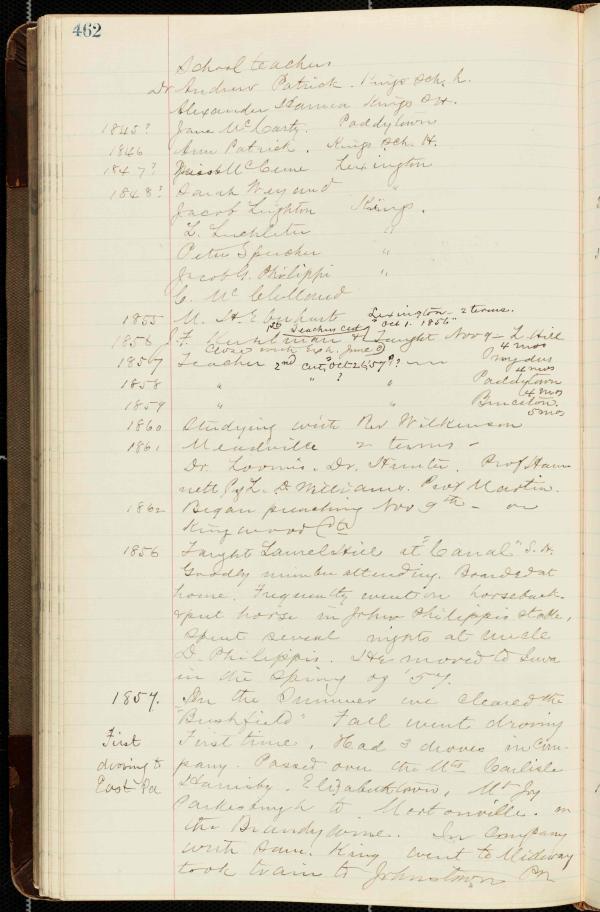 462
School teachers
Dr Andrew Patrick. Kings Sch. h.
Alexander Hanna Kings SH.
1845? Jane McCarty. Paddytown
1846 Ann Patrick. Kings Sch. H.
1847? Miss McCune Lexington
1848? Sarah Weyand "
Jacob Lighton King.
L. Lichliter "
Peter Speicher "
Jacob G. Philippi "
C. McClelland
1855 M. H. Eberhart Lexington - 2 terms.
Teachers Cert. Oct 1. 1856
1856 taught Nov 9 - L. Hill
Close with Exh. June 4 mos
1857 Teacher 2nd Cert, Oct 26, 57??
4 mos
1858 " " ? " Paddytown
4 mos
1859 " " Bruceton.
5 mos
1860 Studying with Rev Wilkinson
1861 Meadville 2 terms -
Dr. Loomis. Dr. Hunter. Prof Ham
nett, L. D. Williams. Prof Martin.
1862 Began preaching Nov 9th - on
Kingwood Ct
1856 Taught Laurel Hill at "Canal" S. H.
Goodly number attending. Boarded at
home. Frequently went on horseback
& put horse in John Philippis stable,
Spent several nights at uncle
D. Philippis. moved to Iowa
in the Spring of '57.
1857. In the Summer we cleared the
"Bushfield" Fall went droving
First First time. Had 3 droves in Com-
droving to pany. Passed over the Mts Carlisle
East Pa Harrisbg. Elizabethtown, Mt Joy
Parkesburgh to Mortonville. on
the Brandywine. In Company
with Sam. King went to Midway
took train to Johnstown Pa